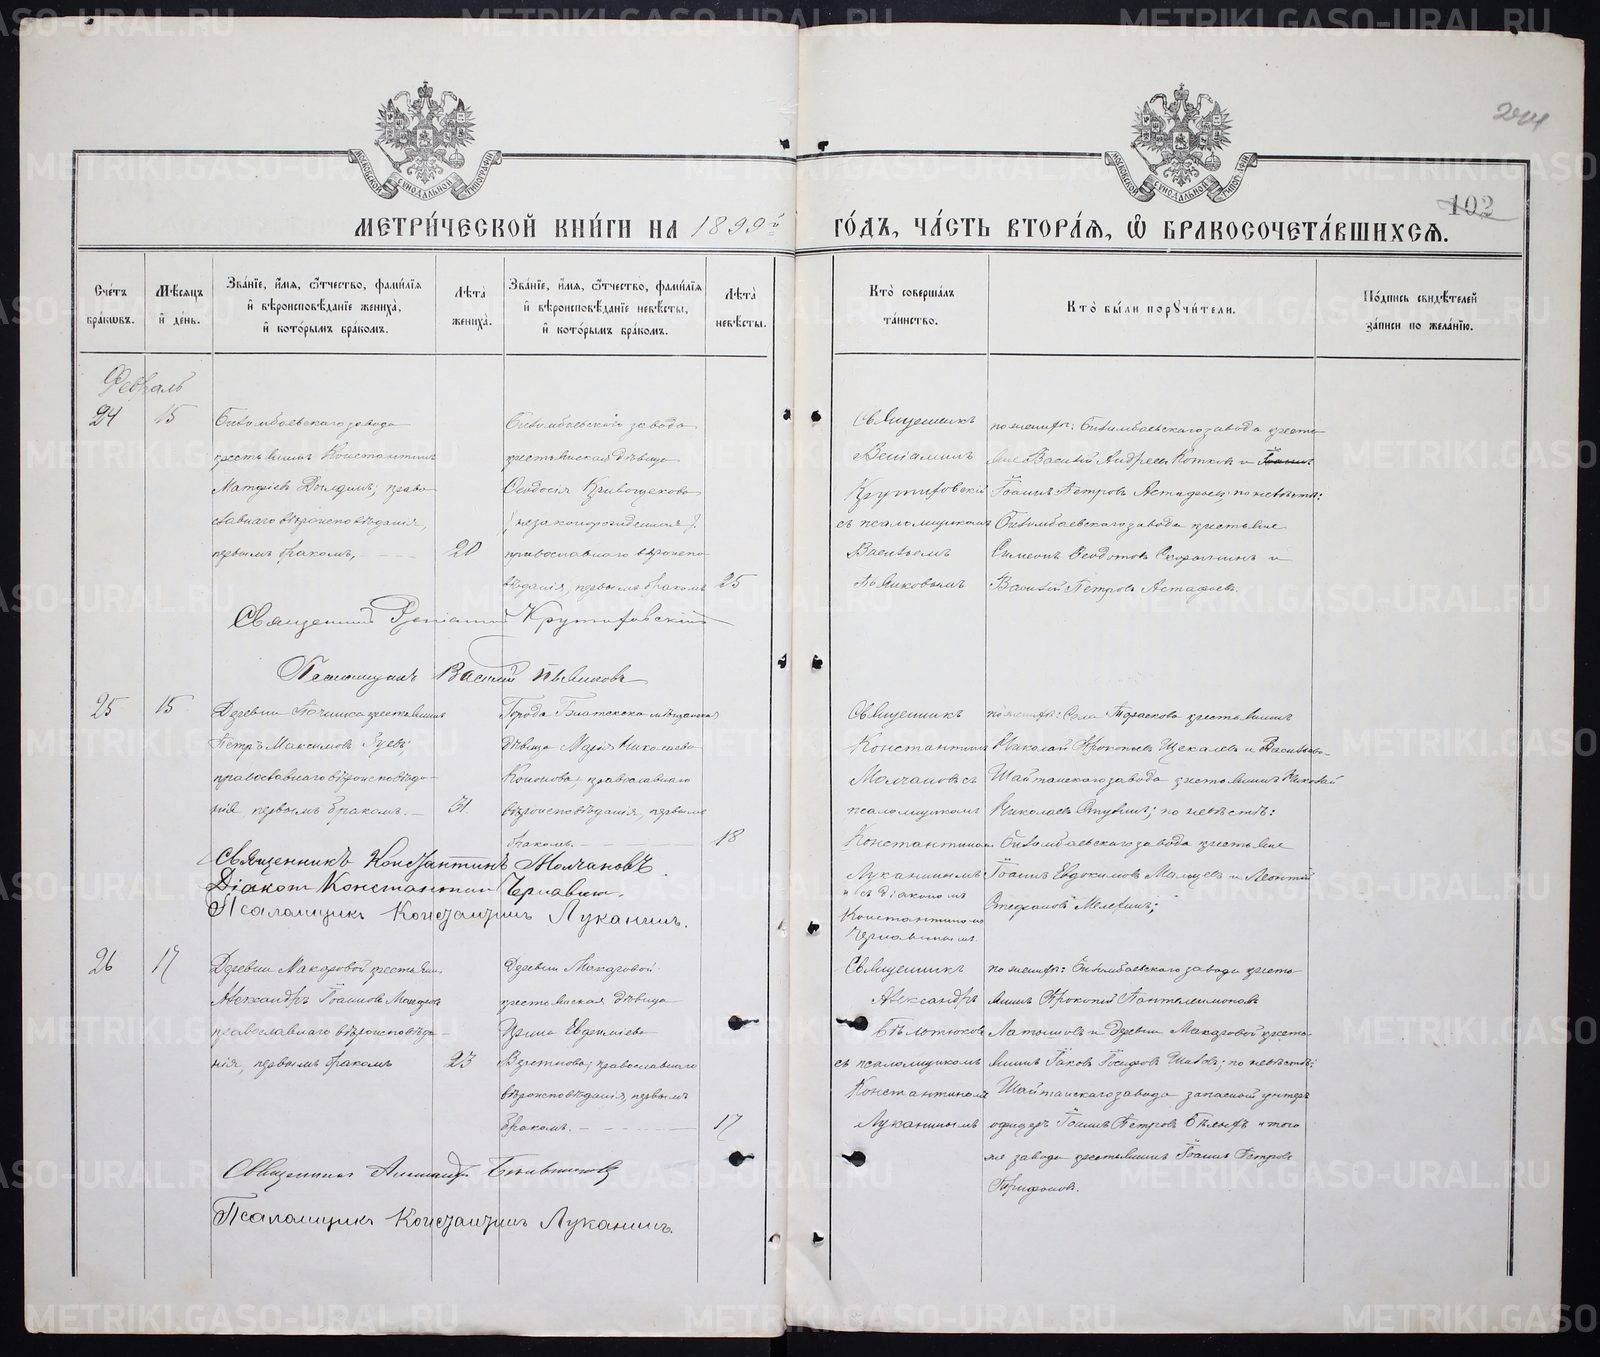 МЕТРИ́ЧЕСКОЙ КНИ́ГИ НА 1899й ГО́ДЪ, ЧА́СТЬ ВТОРА́Я, Ѡ҆ БРАКОСОЧЕТА́ВШИХСѦ.
102
Сче́тъ бра́кѡвъ.
Мѣ́сяцъ и҆ де́нь.
Зва́нїе, и҆́мѧ, ѻ҆́тчество, фами́лїѧ и҆ вѣроисповѣ́данїе жениха̀, и҆ кото́рымъ бра́комъ.
Лѣ́та жениха̀.
Зва́нїе, и҆́мѧ, ѻ҆́тчество, фами́лїѧ и҆ вѣроисповѣ́данїе невѣ́сты, и҆ кото́рымъ бра́комъ.
Лѣ́та невѣ́сты.
Кто̀ соверша́лъ та́инство.
Кто̀ бы́ли порꙋчи́тели.
По́дпись свидѣ́телей за́писи по жела́нїю.
Февраль
24
15
Билимбаевскаго завода
крестьянинъ Константинъ
Матфіевъ ; право
славнаго вѣроисповѣданія,
первымъ бракомъ,
20
Билимбаевскаго завода
крестьянская дѣвица
Ѳеодосія Кривощекова
(незаконорожденная)
православнаго вѣроиспо
вѣданія, первымъ бракомъ
25
Священникъ
Веніаминъ
Крутиховскій
съ псаломщикомъ
Василіемъ
Пьянковымъ
по женихѣ: Билимбаевскаго завода кресть
яне Василій Андреевъ Котковъ и Іоаннъ
Іоаннъ Петровъ Астафьевъ; по невѣстѣ:
Билимбаевскаго завода крестьяне
Симеонъ Ѳеодотовъ и
Василій Петровъ Астафьевъ.
Священникъ Веніаминъ Крутиховскій
Псаломщикъ Василій Пьянковъ
25
15
Деревни Починка крестьянинъ
Петръ Максимовъ Зуевъ,
православнаго вѣроисповѣда-
нія, первымъ бракомъ.
31.
Города мѣщанская
дѣвица Марія Николаева
Кононова, православнаго
вѣроисповѣданія, первымъ
бракомъ.
18
Священникъ
Константинъ
Молчановъ съ
псаломщикомъ
Константиномъ
Луканинымъ
и съ діакономъ
Константиномъ
Чернавинымъ.
по женихѣ: Села Тараскова крестьянинъ
Николай Прокопьевъ Щекалевъ и Васильево-
Шайтанскаго завода крестьянинъ Николай
Николаевъ ; по невѣстѣ:
Билимбаевскаго завода крестьяне
Іоаннъ Евдокимовъ Мальцевъ и Леонтій
Стефановъ Мелехинъ;
Священникъ Константинъ Молчановъ.
Діаконъ Константинъ Чернавинъ.
Псаломщикъ Константинъ Луканинъ.
26
17
Деревни Макаровой крестьянинъ
Александръ Іоанновъ
православнаго вѣроисповѣда-
нія, первымъ бракомъ
23
Деревни Макаровой
крестьянская дѣвица
Евфиміева
православнаго
вѣроисповѣданія, первымъ
бракомъ.
17
Священникъ
Александръ
Бѣльтюковъ
съ псаломщикомъ
Константиномъ
Луканинымъ
по женихѣ: Билимбаевскаго завода кресть
янинъ Прокопій Пантелеимоновъ
Латышовъ и деревни Макаровой кресть
янинъ Іаковъ Іосифовъ ; по невѣстѣ:
Шайтанскаго завода запасной унтеръ
офицеръ Іоаннъ Петровъ Бѣлыхъ и того
же завода крестьянинъ Іоаннъ Петровъ
Трифоновъ.
Священникъ Александръ Бѣльтюковъ
Псаломщикъ Константинъ Луканинъ.
METRIKI.GASO-URAL.RU